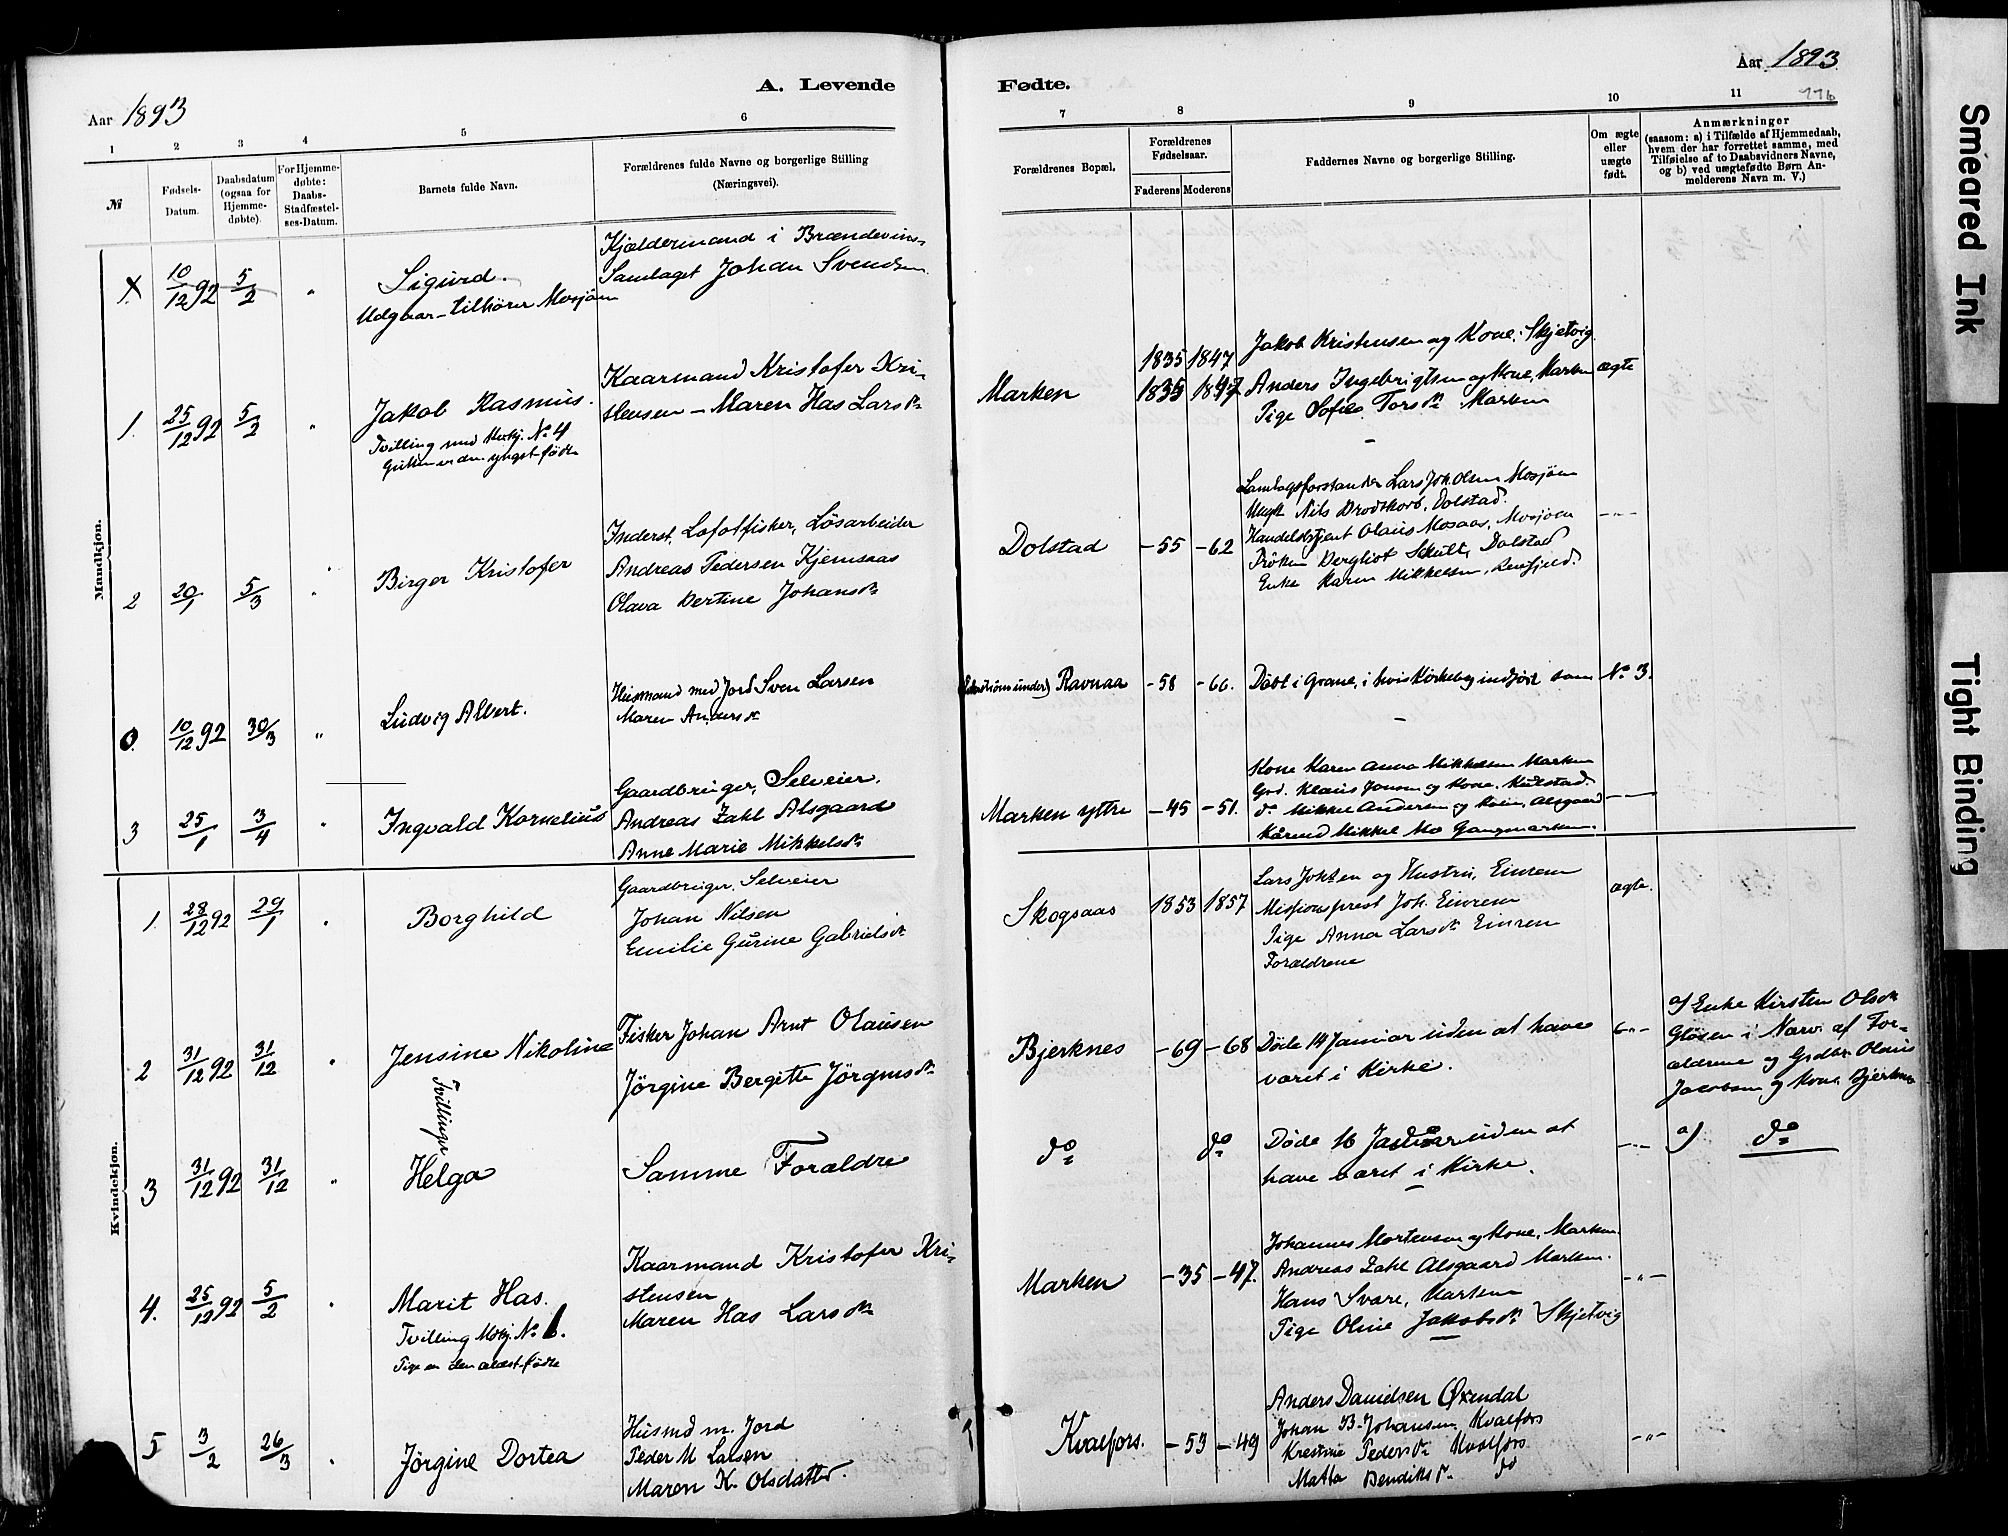 Aar 1893
A. Levende
1 2 3 4 5 6
№
Fødsels-
Datum.
Daabsdatum
(ogsaa for
Hjemme-
døbte).
For Hjemme-
døbte:
Daabs-
Stadfæstel-
ses-Datum.
Barnets fulde Navn.
Forældrenes fulde Navne og borgerlige Stilling
(Næringsvei).
Mandkjøn.
10/12 92 5/2 "
Sigurd.
Udgaar - tilhører Mosjøen
Kjældermand i Brændevins-
Samlaget Johan Svendsen
1. 25/12 92 5/2 "
Jakob Rasmus.
Tvilling med Kvkj. No 4
Gutten er den yngst fødte
Kaarmand Kristofer Kri-
stensen - Maren Has Larsdr
2 20/1 5/3 "
Birger Kristofer
Inderst, Lofotfisker, Løsarbeider
Andreas Pedersen Kjemsaas
Olava Bertine Johansdr
0. 10/12 92 30/3 "
Ludvig Albert.
Husmand med Jord Sven Larsen
Maren Andersdr
3 25/1 3/4 "
Ingvald Kornelius
Gaardbruger, Selveier.
Andreas Zahl Alsgaard
Anne Marie Mikkelsdr
Kvindekjøn.
1. 28/12 92 29/1 "
Borghild
Gaardbruger, Selveier
Johan Nilsen
Emilie Gurine Gabrielsdr
2 31/12 92 31/12 "
Jensine Nikoline
Tvillinger
Fisker Johan Arnt Olausen
Jørgine Bergitte Jørgensdr
3 31/12 92 31/12 "
Helga
Samme Forældre
4. 25/12 92 5/2 "
Marit Has.
Tvilling Mskj. No 1.
Pige er den ældst fødte
Kaarmand Kristofer Kri-
stensen
Maren Has Larsdr
5 3/2 26/3
Jørgine Dortea
Husmd m. Jord
Peder M Larsen
Maren K. Olsdatter.
Aar 1893
116
Fødte.
7 8 9 10 11
Forældrenes Bopæl,
Forældrenes
Fødselsaar.
Faderens Moderens
Faddernes Navne og borgerlige Stilling.
Om ægte
eller
uægte
født.
Anmærkninger
(saasom: a) i Tilfælde af Hjemmedaab,
hvem der har forrettet samme, med
Tilføielse af to Daabsvidners Navne,
og b) ved uægtefødte Børn An-
melderens Navn m. V.)
1835 1847
Jakob Kristensen og Kone, Skjetvig
Marken 1835 1847 Anders Ingebrigtsen og Kone, Marken ægte
Pige Sofie Torsdr Marken
Samlagsforstander Lars Joh. Olsen Mosjøen
Ungk Nils Brodtkorb, Dolstad.
Dolstad - 55 - 62 Handelsbetjent Olaus Mosaas, Mosjøen - " -
Frøken Bergliot Schult, Dolstad
Enke Karen Mikkelsen,
under) Ravnaa - 58 - 66. Døbt i Grane, i hvis Kirkebog indført som No 3.
Kone Karen Anna Mikkelsen Marken
Grd. Klaus Jonsen og Kone, Kulstad.
Marken yttre - 45 - 51. do Mikkel Andersen og Kone, Alsgaard
Mikkel Mo
Skogsaas 1853 1857
Lars Johsen og Hustru, Einrem
Missionsprest Joh. Einrem
Pige Anna Larsdr Einrem
Forældrene
ægte.
Bjerknes - 69 - 68 Døde 14 Januar uden at have
været i Kirke.
a) Enke Kirsten Olsdr
i Nærv. af For-
ældrene og Grdbr. Olaus
Jacobsen og Kone Bjerknes
do do Døde 16 Januar uden at
have været i Kirke.
a) do
Marken - 35 - 47.
Johannes Mortensen og Kone, Marken.
Andreas Zahl Alsgaard Marken.
Hans Svare, Marken
Pige Oline Jakobsdr Skjetvig
- " -
Kvalfors. - 53 - 49
Anders Danielsen Øxendal
Johan B. Johansen Kvalfors
Krestine Pedersdr Kvalfors
Matta Bendiksdr do
- " -
Smeared Ink
Tight Binding